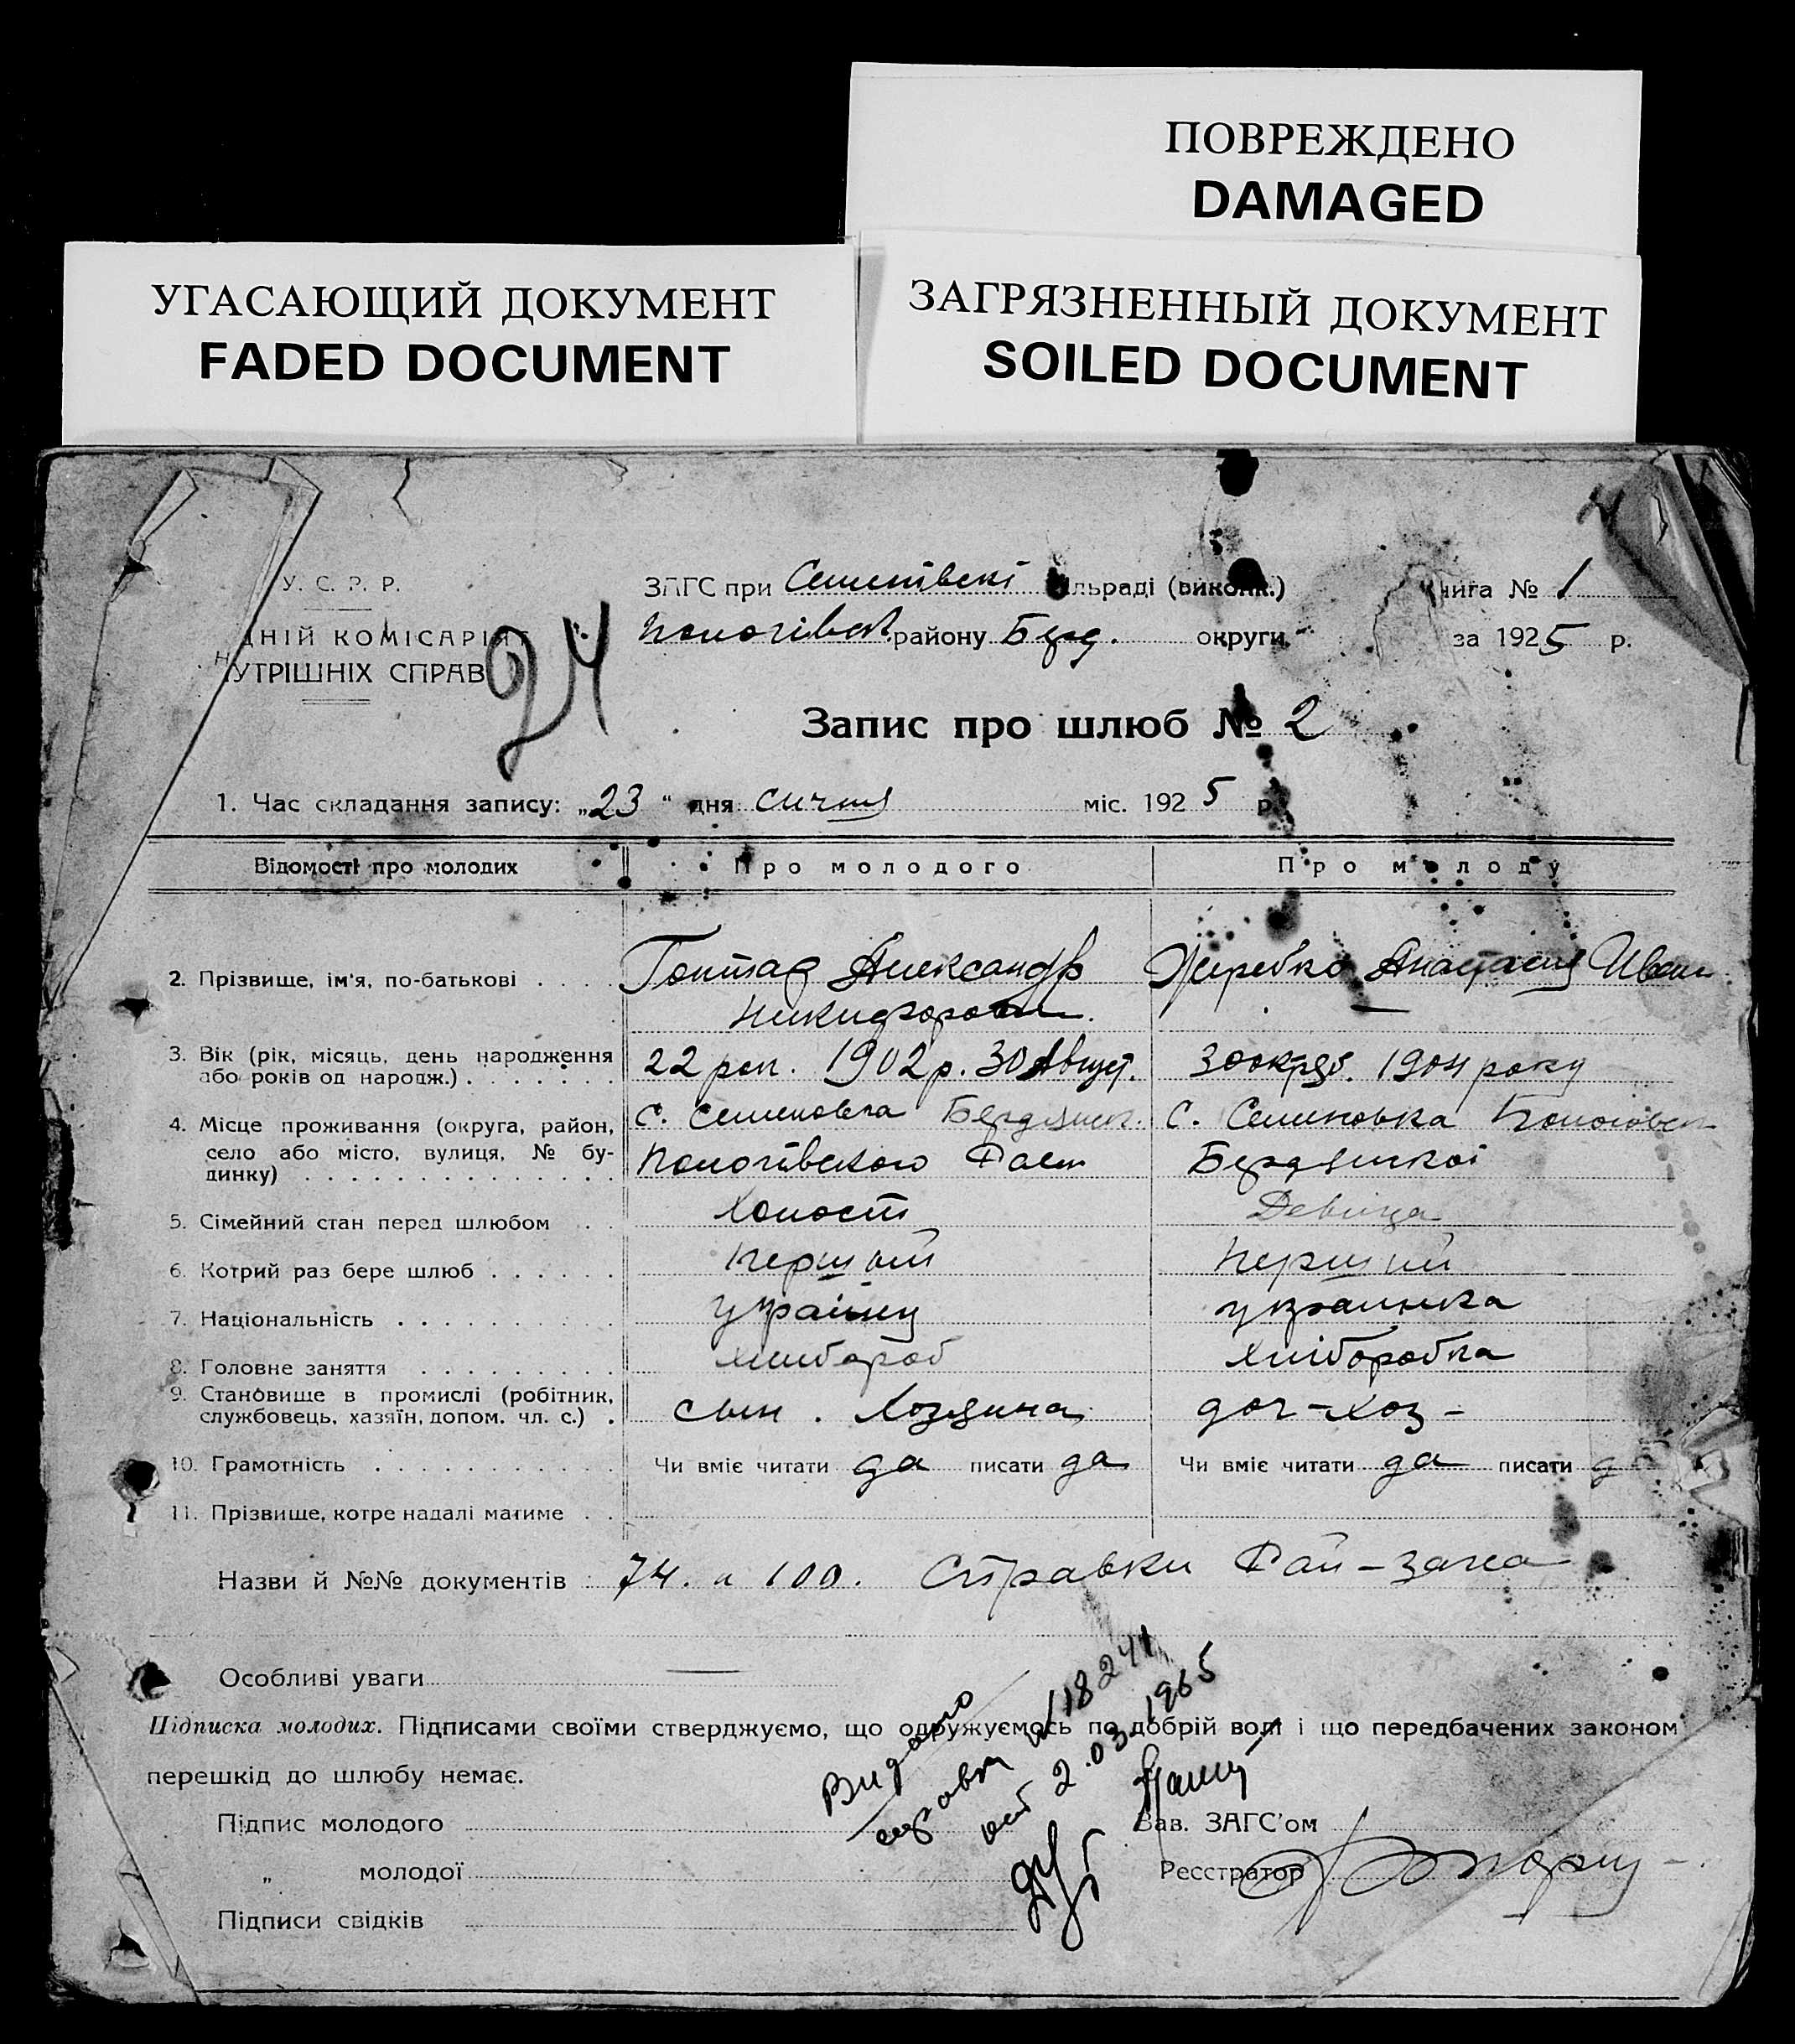 ПОВРЕЖДЕНО
DAMAGED
УГАСАЮЩИЙ ДОКУМЕНТ
FADED DOCUMENT
ЗАГРЯЗНЕННЫЙ ДОКУМЕНТ
SOILED DOCUMENT
У. С. Р. Р.
ДНІЙ КОМІСАРІЯТ
УТРІШНІХ СПРАВ
24
ЗАГС при Семенівскі льраді (виконк.)
Пологівск району Берд. округи
нига № 1
за 1925 р.
Запис про шлюб № 2
1. Час складання запису: „23“ дня січня міс. 1925 р.
Відомості про молодих Про молодого Про молоду
2. Прізвище, ім'я, по-батькові . . . . Александр Жеребко Анастасия Иван
Никифоров.
3. Вік (рік, місяць, день народження або років од народж.) . . . . . . . 22 рок. 1902 р. 30 Август. 30 октяб. 1904 року
4. Місце проживання (округа, район, село або місто, вулиця, № будинку) . . . . . . . . . . . . . . с. Семеновка Бердянск. с. Семеновка Пологовск
Пологівского Бердянскоі
5. Сімейний стан перед шлюбом . . Холост Девица
6. Котрий раз бере шлюб . . . . . . Перший Перший
7. Національність . . . . . . . . . . українц украинка
8. Головне заняття . . . . . . . . . хлибороб хліборобка
9. Становище в промислі (робітник, службовець, хазяїн, допом. чл. с.) . сын. Хозяина доч-хоз-
10. Грамотність . . . . . . . . . . . Чи вміє читати да писати да Чи вміє читати да писати д
11. Прізвище, котре надалі матиме . .
Назви й №№ документів 74. и 100. Справки
Особливі уваги —
Підписка молодих. Підписами своїми стверджуємо, що одружуємось по добрій волі і що передбачених законом
перешкід до шлюбу немає.
Видано
справка 118241
от 2.03.1965
Підпис молодого
Зав. ЗАГС'ом
„ молодої
Реєстратор
Підписи свідків